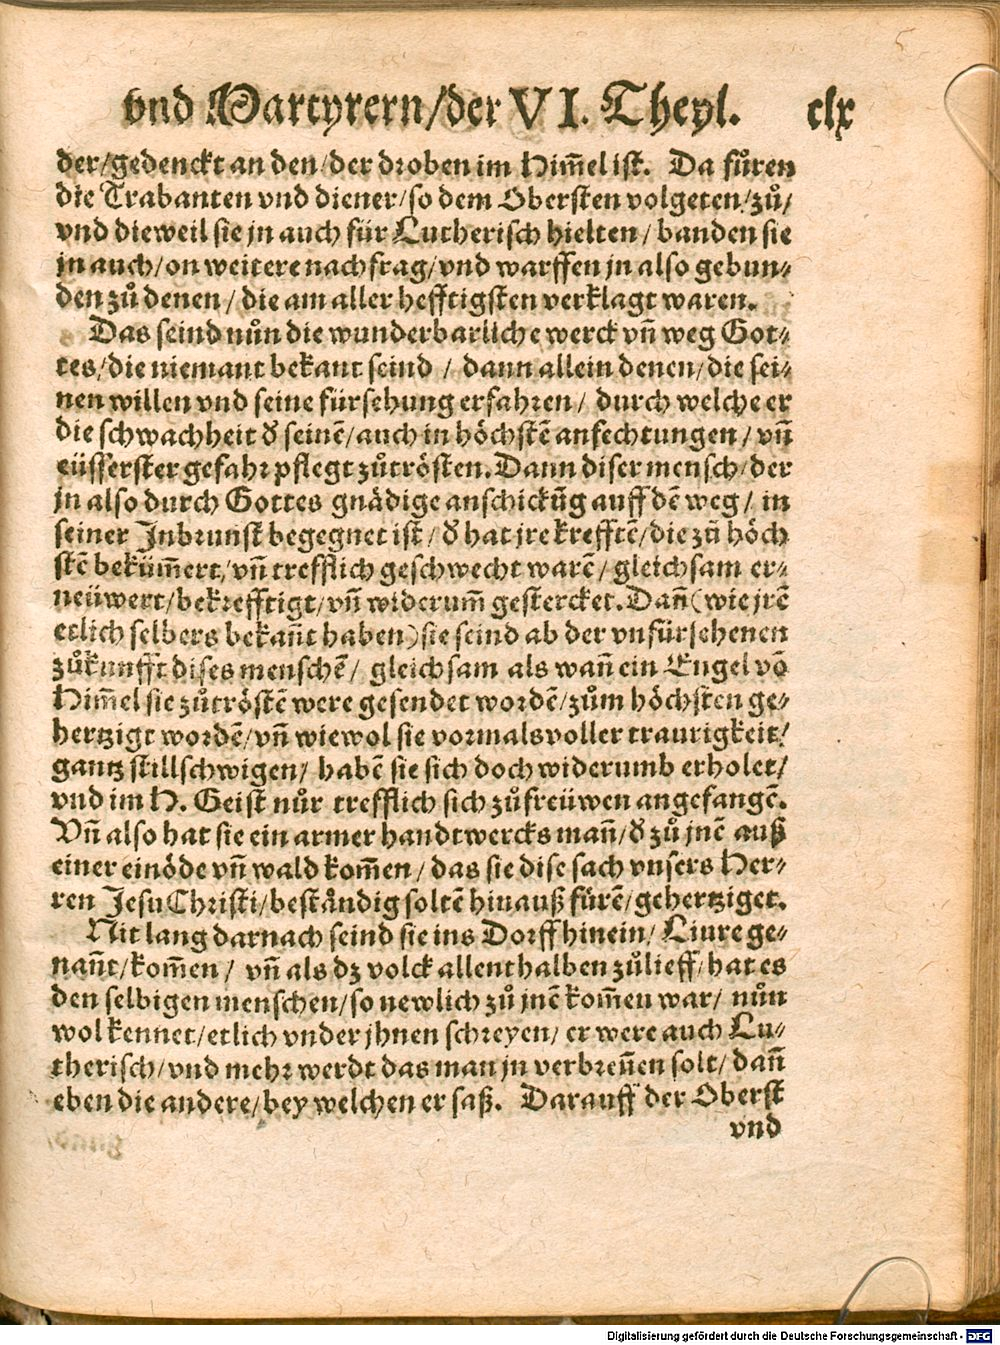 vnd Martyrern/der VI. Theyl. clx
der/gedenckt an den/der droben im Him̃el ist. Da fůren
die Trabanten vnd diener/so dem Obersten volgeten/zů/
vnd dieweil sie jn auch für Lutherisch hielten/ banden sie
jn auch/on weitere nachfrag/vnd warffen jn also gebun⸗
den zů denen/die am aller hefftigsten verklagt waren.
Das seind nůn die wunderbarliche werck vñ weg Got⸗
tes/die niemant bekant seind / dann allein denen/die sei⸗
nen willen vnd seine fürsehung erfahren/ durch welche er
die schwachheit d̕ seinẽ/auch in höchstẽ anfechtungen/ vñ
eüsserster gefahr pflegt zůtrösten. Dann diser mensch/der
jn also durch Gottes gnädige anschickũg auff dẽ weg/ in
seiner Jnbrunst begegnet ist/ d̕ hat jre krefftẽ/die zů höch
stẽ beküm̃ert/vñ trefflich geschwecht warẽ/ gleichsam er⸗
neüwert/bekrefftigt/vñ widerum̃ gestercket. Dañ (wie jrẽ
etlich selbers bekañt haben) sie seind ab der vnfürsehenen
zůkunfft dises menschẽ/ gleichsam als wañ ein Engel võ
Him̃el sie zůtröstẽ were gesendet wordẽ/zům höchsten ge⸗
hertzigt wordẽ/vñ wiewol sie vormals voller traurigkeit/
gantz stillschwigen/ habẽ sie sich doch widerumb erholet/
vnd im H. Geist nůr trefflich sich zůfreüwen angefangẽ.
Vñ also hat sie ein armer handtwercks mañ/d̕ zů jnẽ auß
einer einöde vñ wald kom̃en/ das sie dise sach vnsers Her⸗
ren Jesu Christi/beståndig soltẽ hinauß fürẽ/gehertziget.
Nit lang darnach seind sie ins Dorff hinein/ Liure ge⸗
nañt/kom̃en/ vñ als dz volck allenthalben zůlieff/hat es
den selbigen menschen/so newlich zů jnẽ kom̃en war/ nůn
wol kennet/etlich vnder jhnen schreyen/ er were auch Lu⸗
therisch/vnd mehr werdt das man jn verbreñen solt/ dañ
eben die andere/bey welchen er saß. Darauff der Oberst
vnd
5
Digitalisierung gefördert durch die Deutsche Forschungsgemeinschaft - DFG